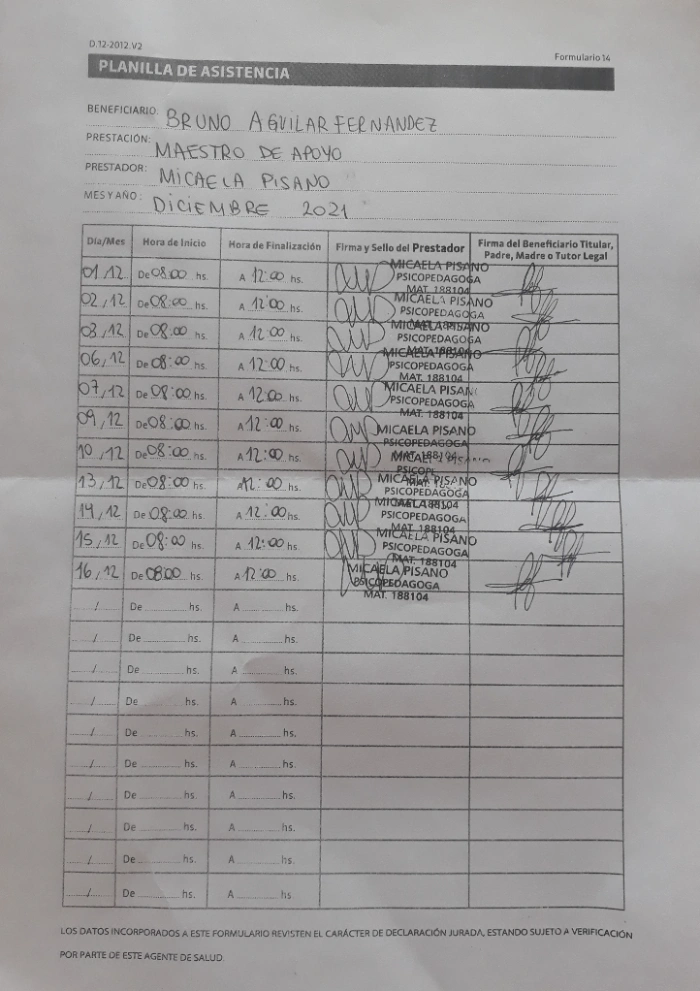 D.12-2012.V2
Formulario 14
PLANILLA DE ASISTENCIA
BENEFICIARIO: BRUNO AGUILAR FERNANDEZ
PRESTACIÓN: MAESTRO DE APOYO
PRESTADOR: MICAELA PISANO
MES Y AÑO: DICIEMBRE 2021
Día/Mes Hora de Inicio Hora de Finalización Firma y Sello del Prestador Firma del Beneficiario Titular, Padre, Madre o Tutor Legal
01,12 De 08:00 hs. A 12:00 hs. MICAELA PISANO
PSICOPEDAGOGA
MAT. 188104
02,12 De 08:00 hs. A 12:00 hs. MICAELA PISANO
PSICOPEDAGOGA
MAT. 188104
03,12 De 08:00 hs. A 12:00 hs. MICAELA PISANO
PSICOPEDAGOGA
MAT. 188104
06,12 De 08:00 hs. A 12:00 hs. MICAELA PISANO
PSICOPEDAGOGA
MAT. 188104
07,12 De 08:00 hs. A 12:00 hs. MICAELA PISAN
PSICOPEDAGOGA
MAT. 188104
09,12 De 08:00 hs. A 12:00 hs. MICAELA PISANO
PSICOPEDAGOGA
MAT. 188104
10,12 De 08:00 hs. A 12:00 hs. MICAELA PISANO
13,12 De 08:00 hs. A 12:00 hs. MICAELA PISANO
PSICOPEDAGOGA
14,12 De 08:00 hs. A 12:00 hs. MICAELA
PSICOPEDAGOGA
MAT. 188104
15,12 De 08:00 hs. A 12:00 hs. MICAELA PISANO
PSICOPEDAGOGA
MAT. 188104
16,12 De 08:00 hs. A 12:00 hs. MICAELA PISANO
PSICOPEDAGOGA
MAT. 188104
/ De hs. A hs.
/ De hs. A hs.
/ De hs. A hs.
/ De hs. A hs.
/ De hs. A hs.
/ De hs. A hs.
/ De hs. A hs.
/ De hs. A hs.
/ De hs. A hs.
/ De hs. A hs.
LOS DATOS INCORPORADOS A ESTE FORMULARIO REVISTEN EL CARÁCTER DE DECLARACIÓN JURADA, ESTANDO SUJETO A VERIFICACIÓN
POR PARTE DE ESTE AGENTE DE SALUD.